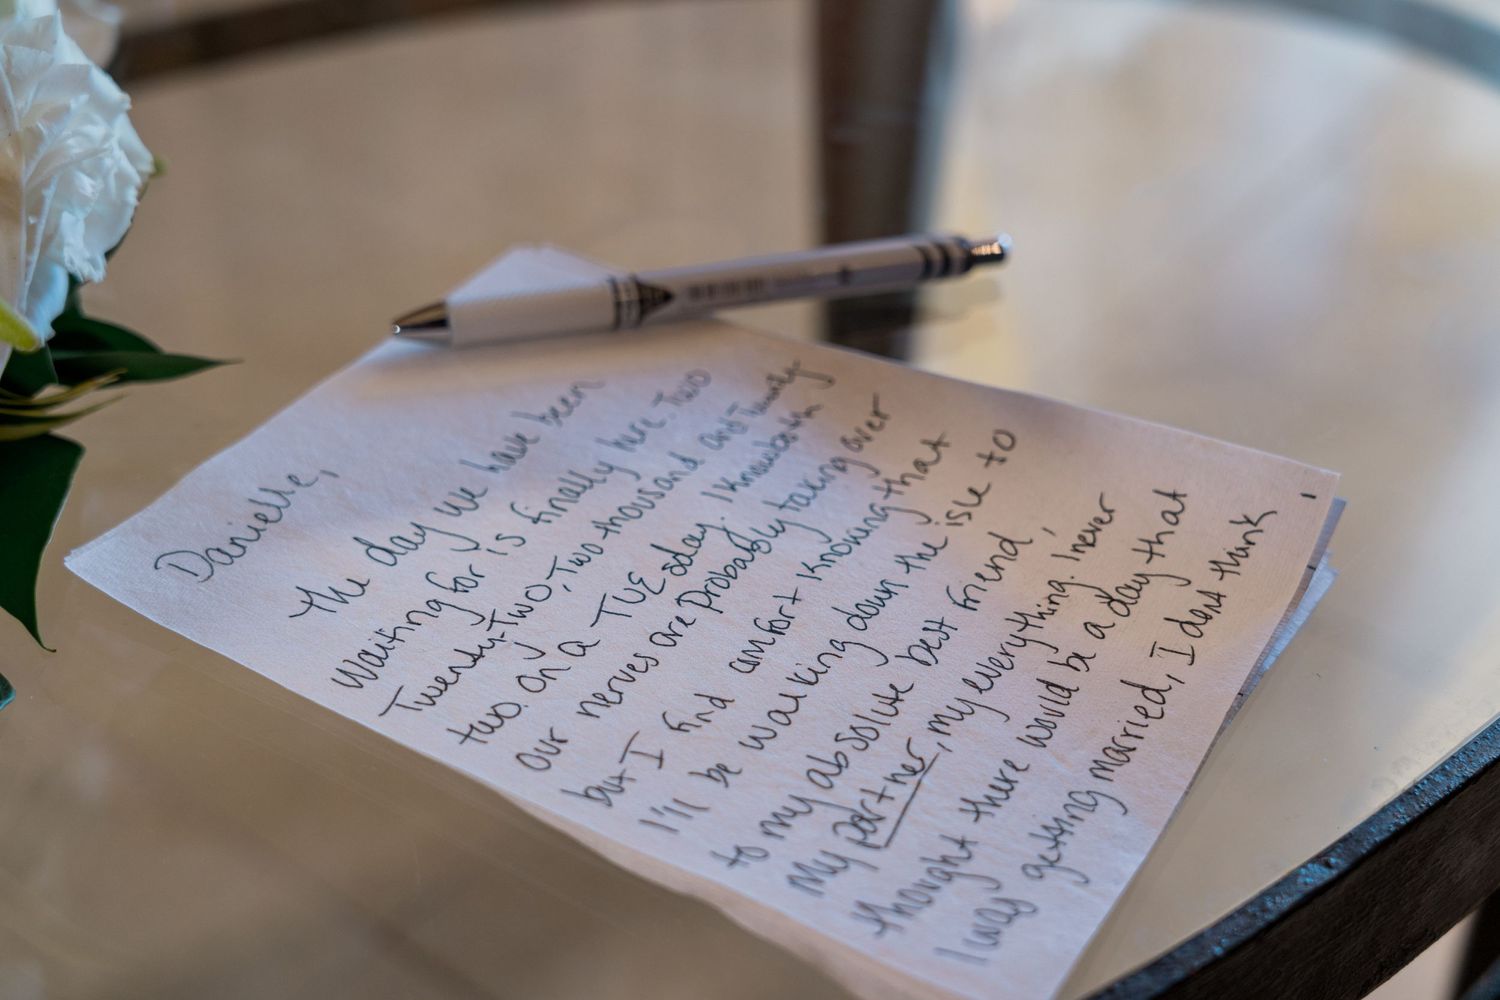 Danielle,
The day we have been
waiting for is finally here. Two
Twenty-Two, Two thousand and Twenty
two. On a TUESday. I know both
our nerves are probably taking over
but I find comfort knowing that
I'll be walking down the isle to
to my absolute best friend,
my partner, my everything. I never
thought there would be a day that
I was getting married, I dont think